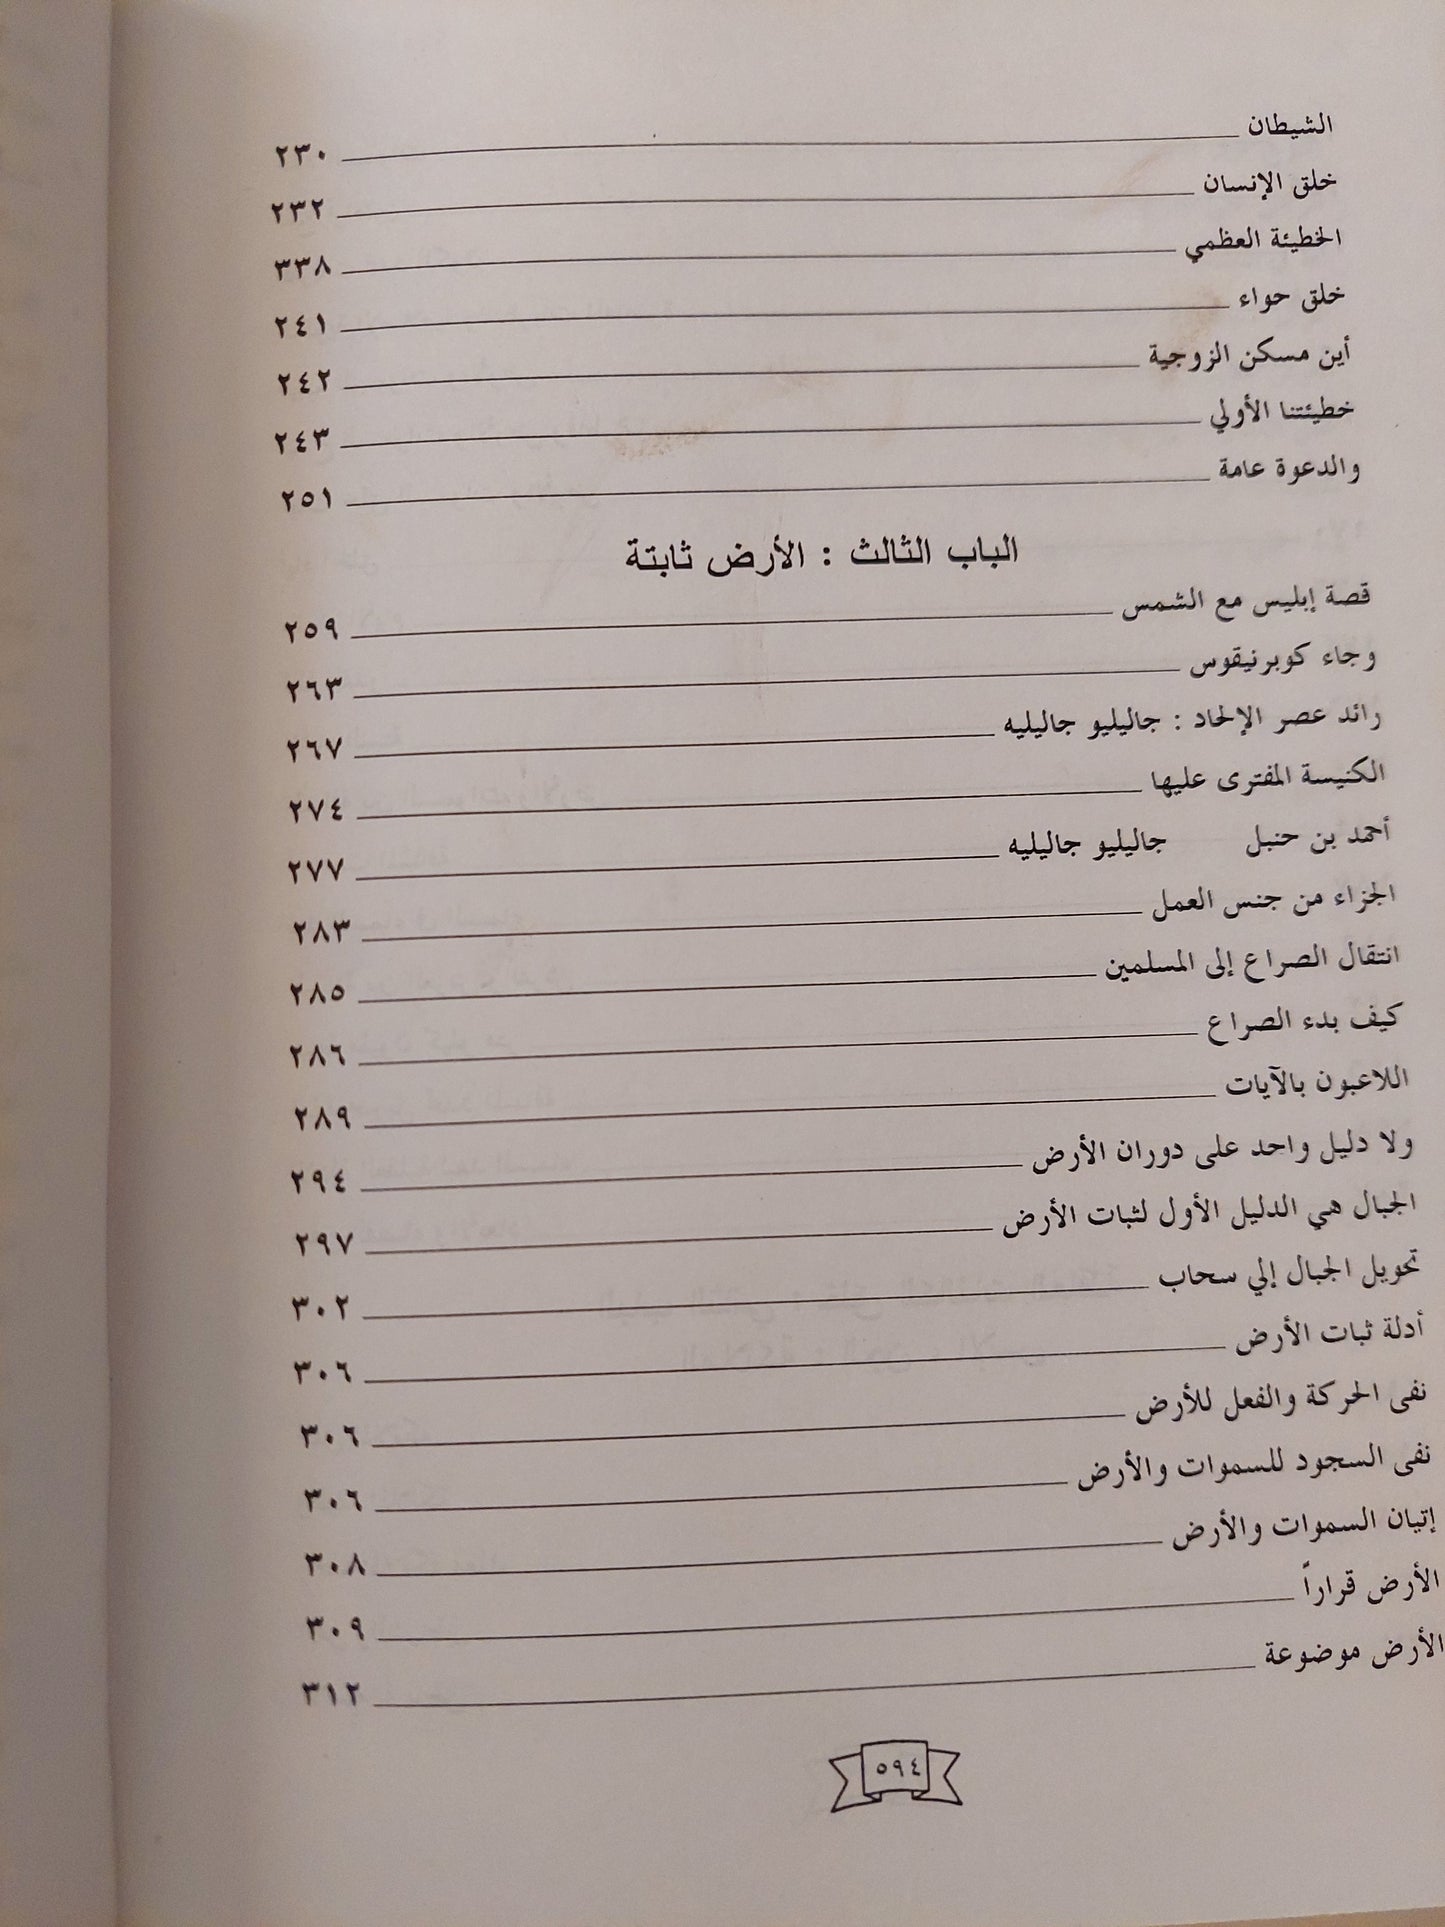 الشيطان ٢٣٠
خلق الإنسان ٢٣٢
الخطيئة العظمي ٣٣٨
خلق حواء ٢٤١
أين مسكن الزوجية ٢٤٢
خطيئتنا الأولي ٢٤٣
والدعوة عامة ٢٥١
الباب الثالث : الأرض ثابتة
قصة إبليس مع الشمس ٢٥٩
وجاء كوبرنيقوس ٢٦٣
رائد عصر الإلحاد : جاليليو جاليليه ٢٦٧
الكنيسة المفترى عليها ٢٧٤
أحمد بن حنبل جاليليو جاليليه ٢٧٧
الجزاء من جنس العمل ٢٨٣
انتقال الصراع إلى المسلمين ٢٨٥
كيف بدء الصراع ٢٨٦
اللاعبون بالآيات ٢٨٩
ولا دليل واحد على دوران الأرض ٢٩٤
الجبال هي الدليل الأول لثبات الأرض ٢٩٧
تحويل الجبال إلي سحاب ٣٠٢
أدلة ثبات الأرض ٣٠٦
نفى الحركة والفعل للأرض ٣٠٦
نفى السجود للسموات والأرض ٣٠٦
إتيان السموات والأرض ٣٠٨
الأرض قراراً ٣٠٩
الأرض موضوعة ٣١٢
٥٩٤